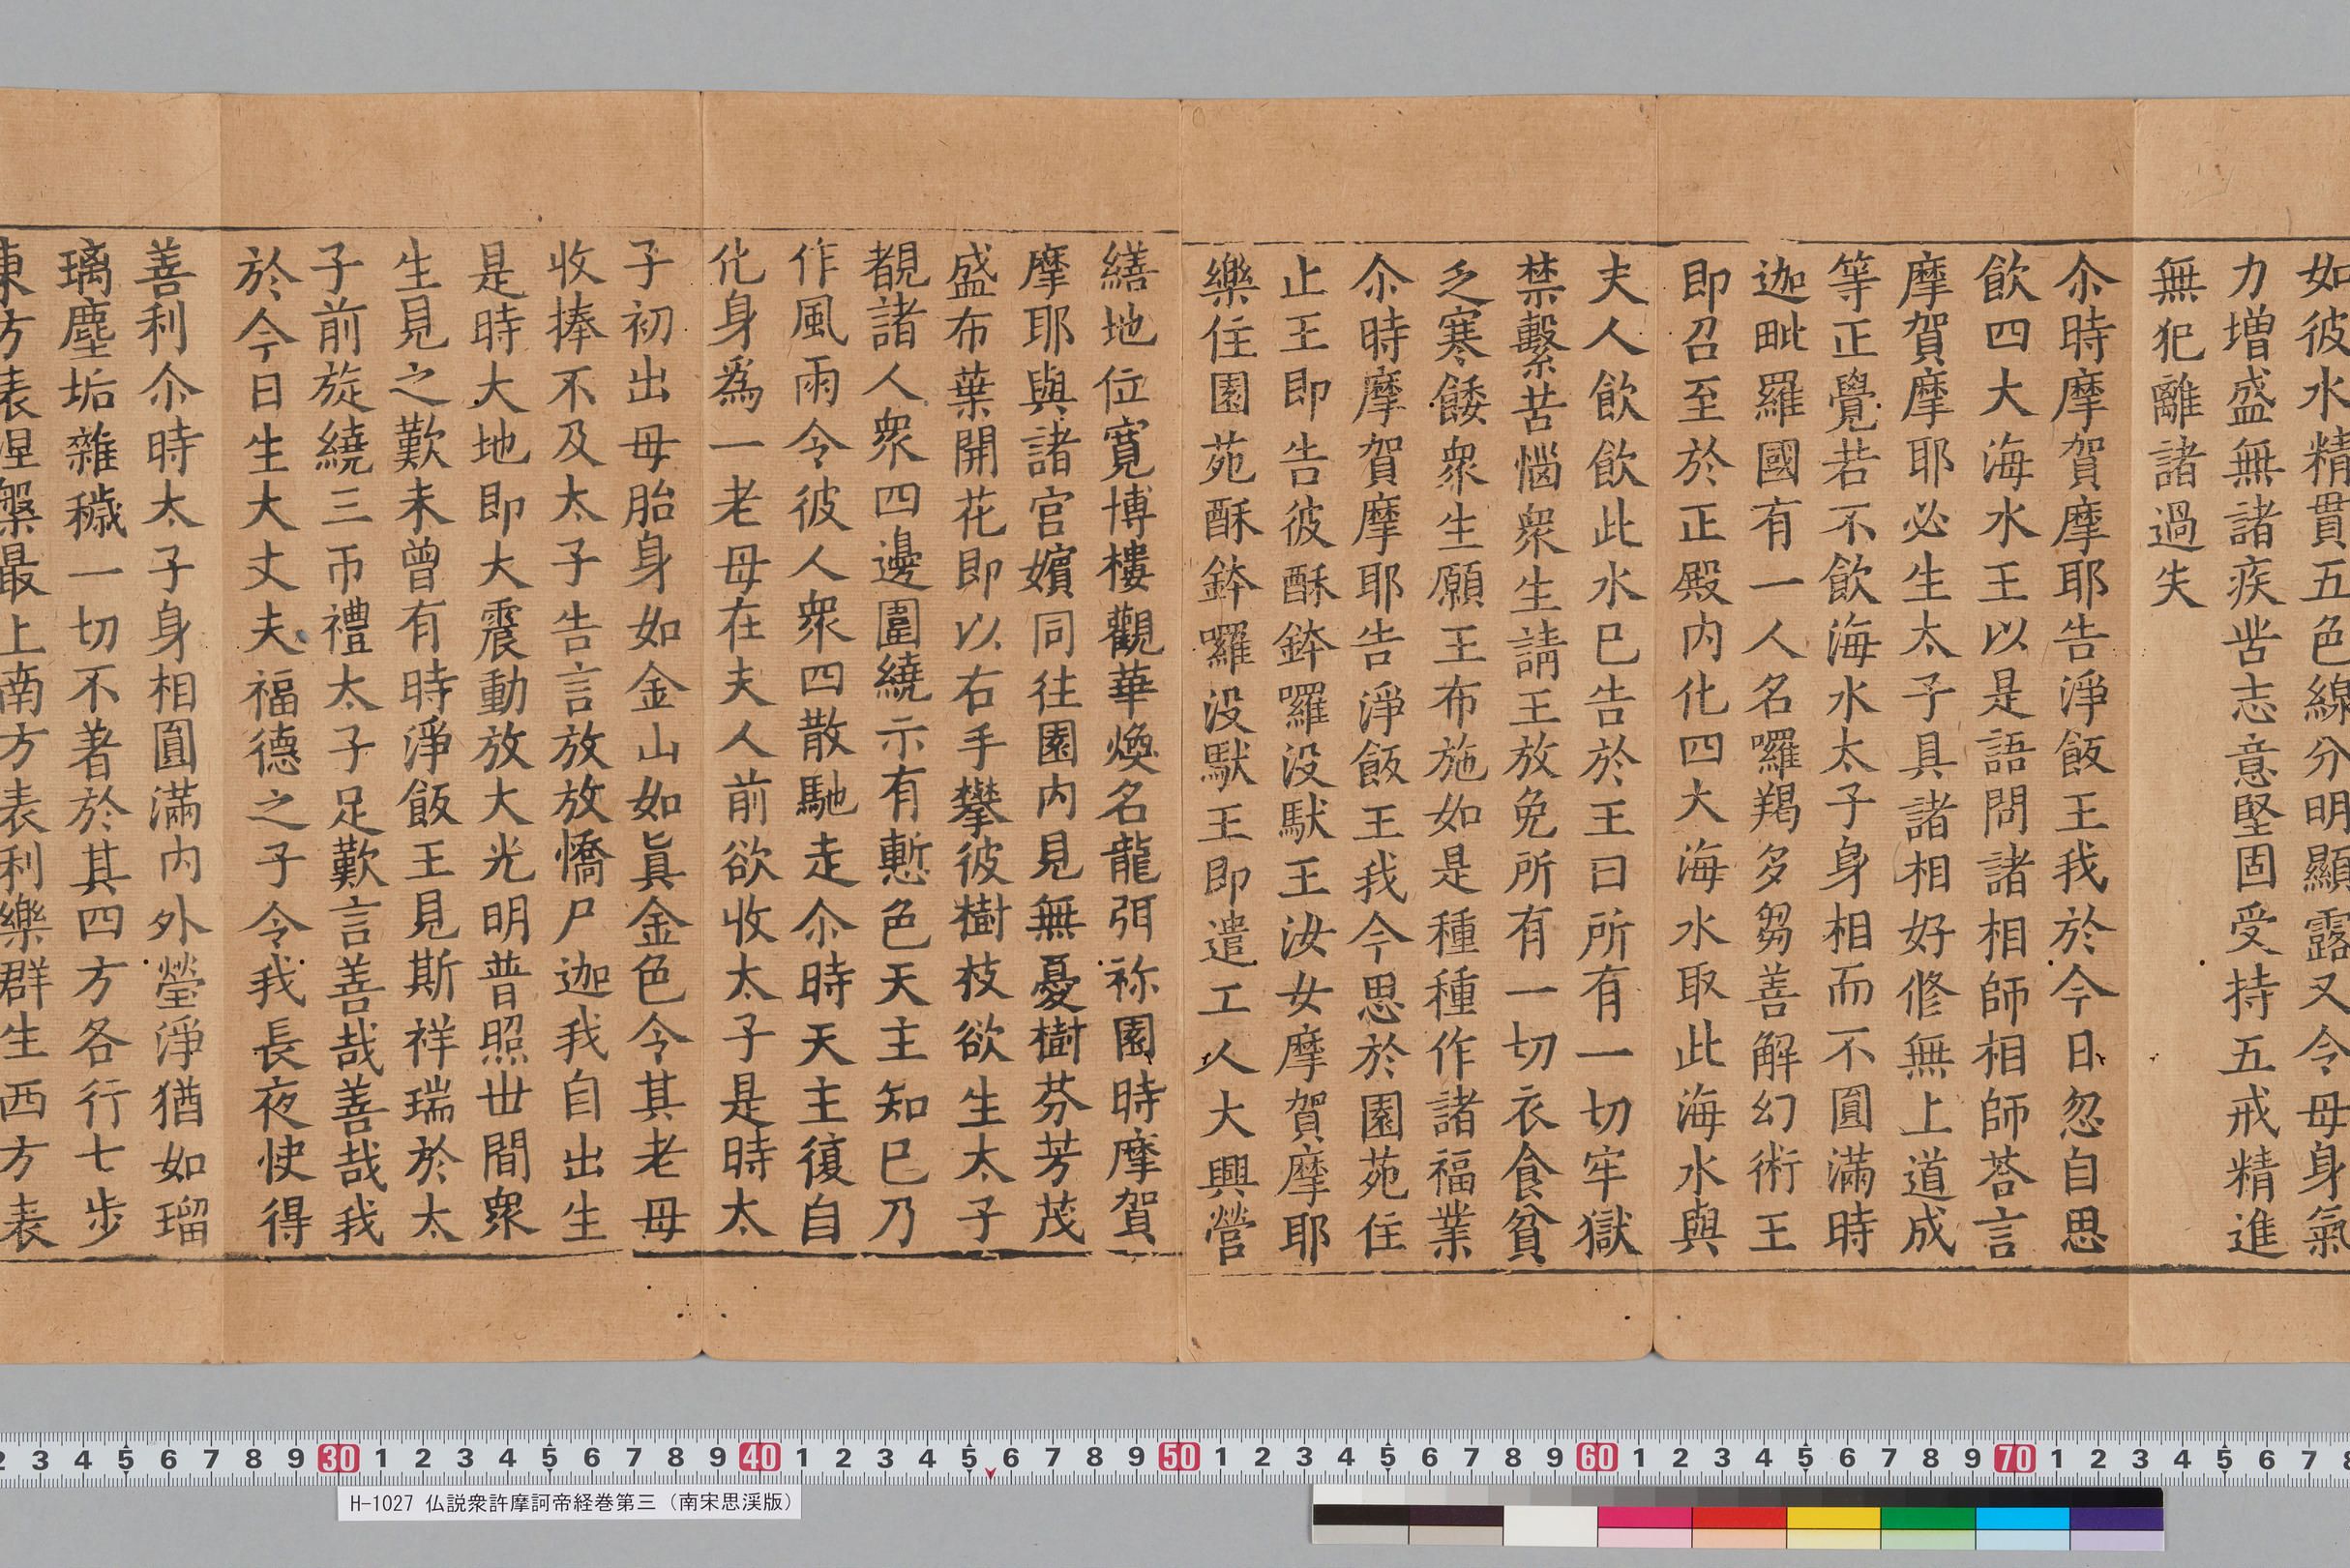 如彼水精貫五色線分明顯露又令母身氣
力增盛無諸疾苦志意堅固受持五戒精進
無犯離諸過失
尒時摩賀摩耶告淨飯王我於今日忽自思
飲四大海水王以是語問諸相師相師荅言
摩賀摩耶必生太子具諸相好修無上道成
等正覺若不飲海水太子身相而不圓滿時
迦毗羅國有一人名囉羯多芻善解幻術王
即召至於正殿内化四大海水取此海水與
夫人飲飲此水已告於王曰所有一切牢獄
禁繫苦惱衆生請王放免所有一切衣食貧
乏寒餧衆生願王布施如是種種作諸福業
尒時摩賀摩耶告淨飯王我今思於園苑住
止王即告彼酥鉢囉没馱王汝女摩賀摩耶
樂住園苑酥鉢囉没馱王即遣工人大興營
繕地位寛博樓觀華煥名龍弭祢園時摩賀
摩耶與諸宫嬪同往園内見無憂樹芬芳茂
盛布葉開花即以右手攀彼樹枝欲生太子
覩諸人衆四邊圍繞示有慙色天主知已乃
作風雨令彼人衆四散馳走尒時天主復自
化身爲一老母在夫人前欲收太子是時太
子初出母胎身如金山如眞金色令其老母
收捧不及太子告言放放憍尸迦我自出生
是時大地即大震動放大光明普照世間衆
生見之歎未曾有時淨飯王見斯祥瑞於太
子前旋繞三帀禮太子足歎言善哉善哉我
於今日生大丈夫福德之子令我長夜快得
善利尒時太子身相圓滿内外瑩淨猶如瑠
璃塵垢雜穢一切不著於其四方各行七步
東方表涅槃最上南方表利樂群生西方表
2 3 4 5 6 7 8 9 30 1 2 3 4 5 6 7 8 9 40 1 2 3 4 5 6 7 8 9 50 1 2 3 4 5 6 7 8 9 60 1 2 3 4 5 6 7 8 9 70 1 2 3 4 5 6 7 8
H-1027 仏説衆許摩訶帝経巻第三（南宋思渓版）